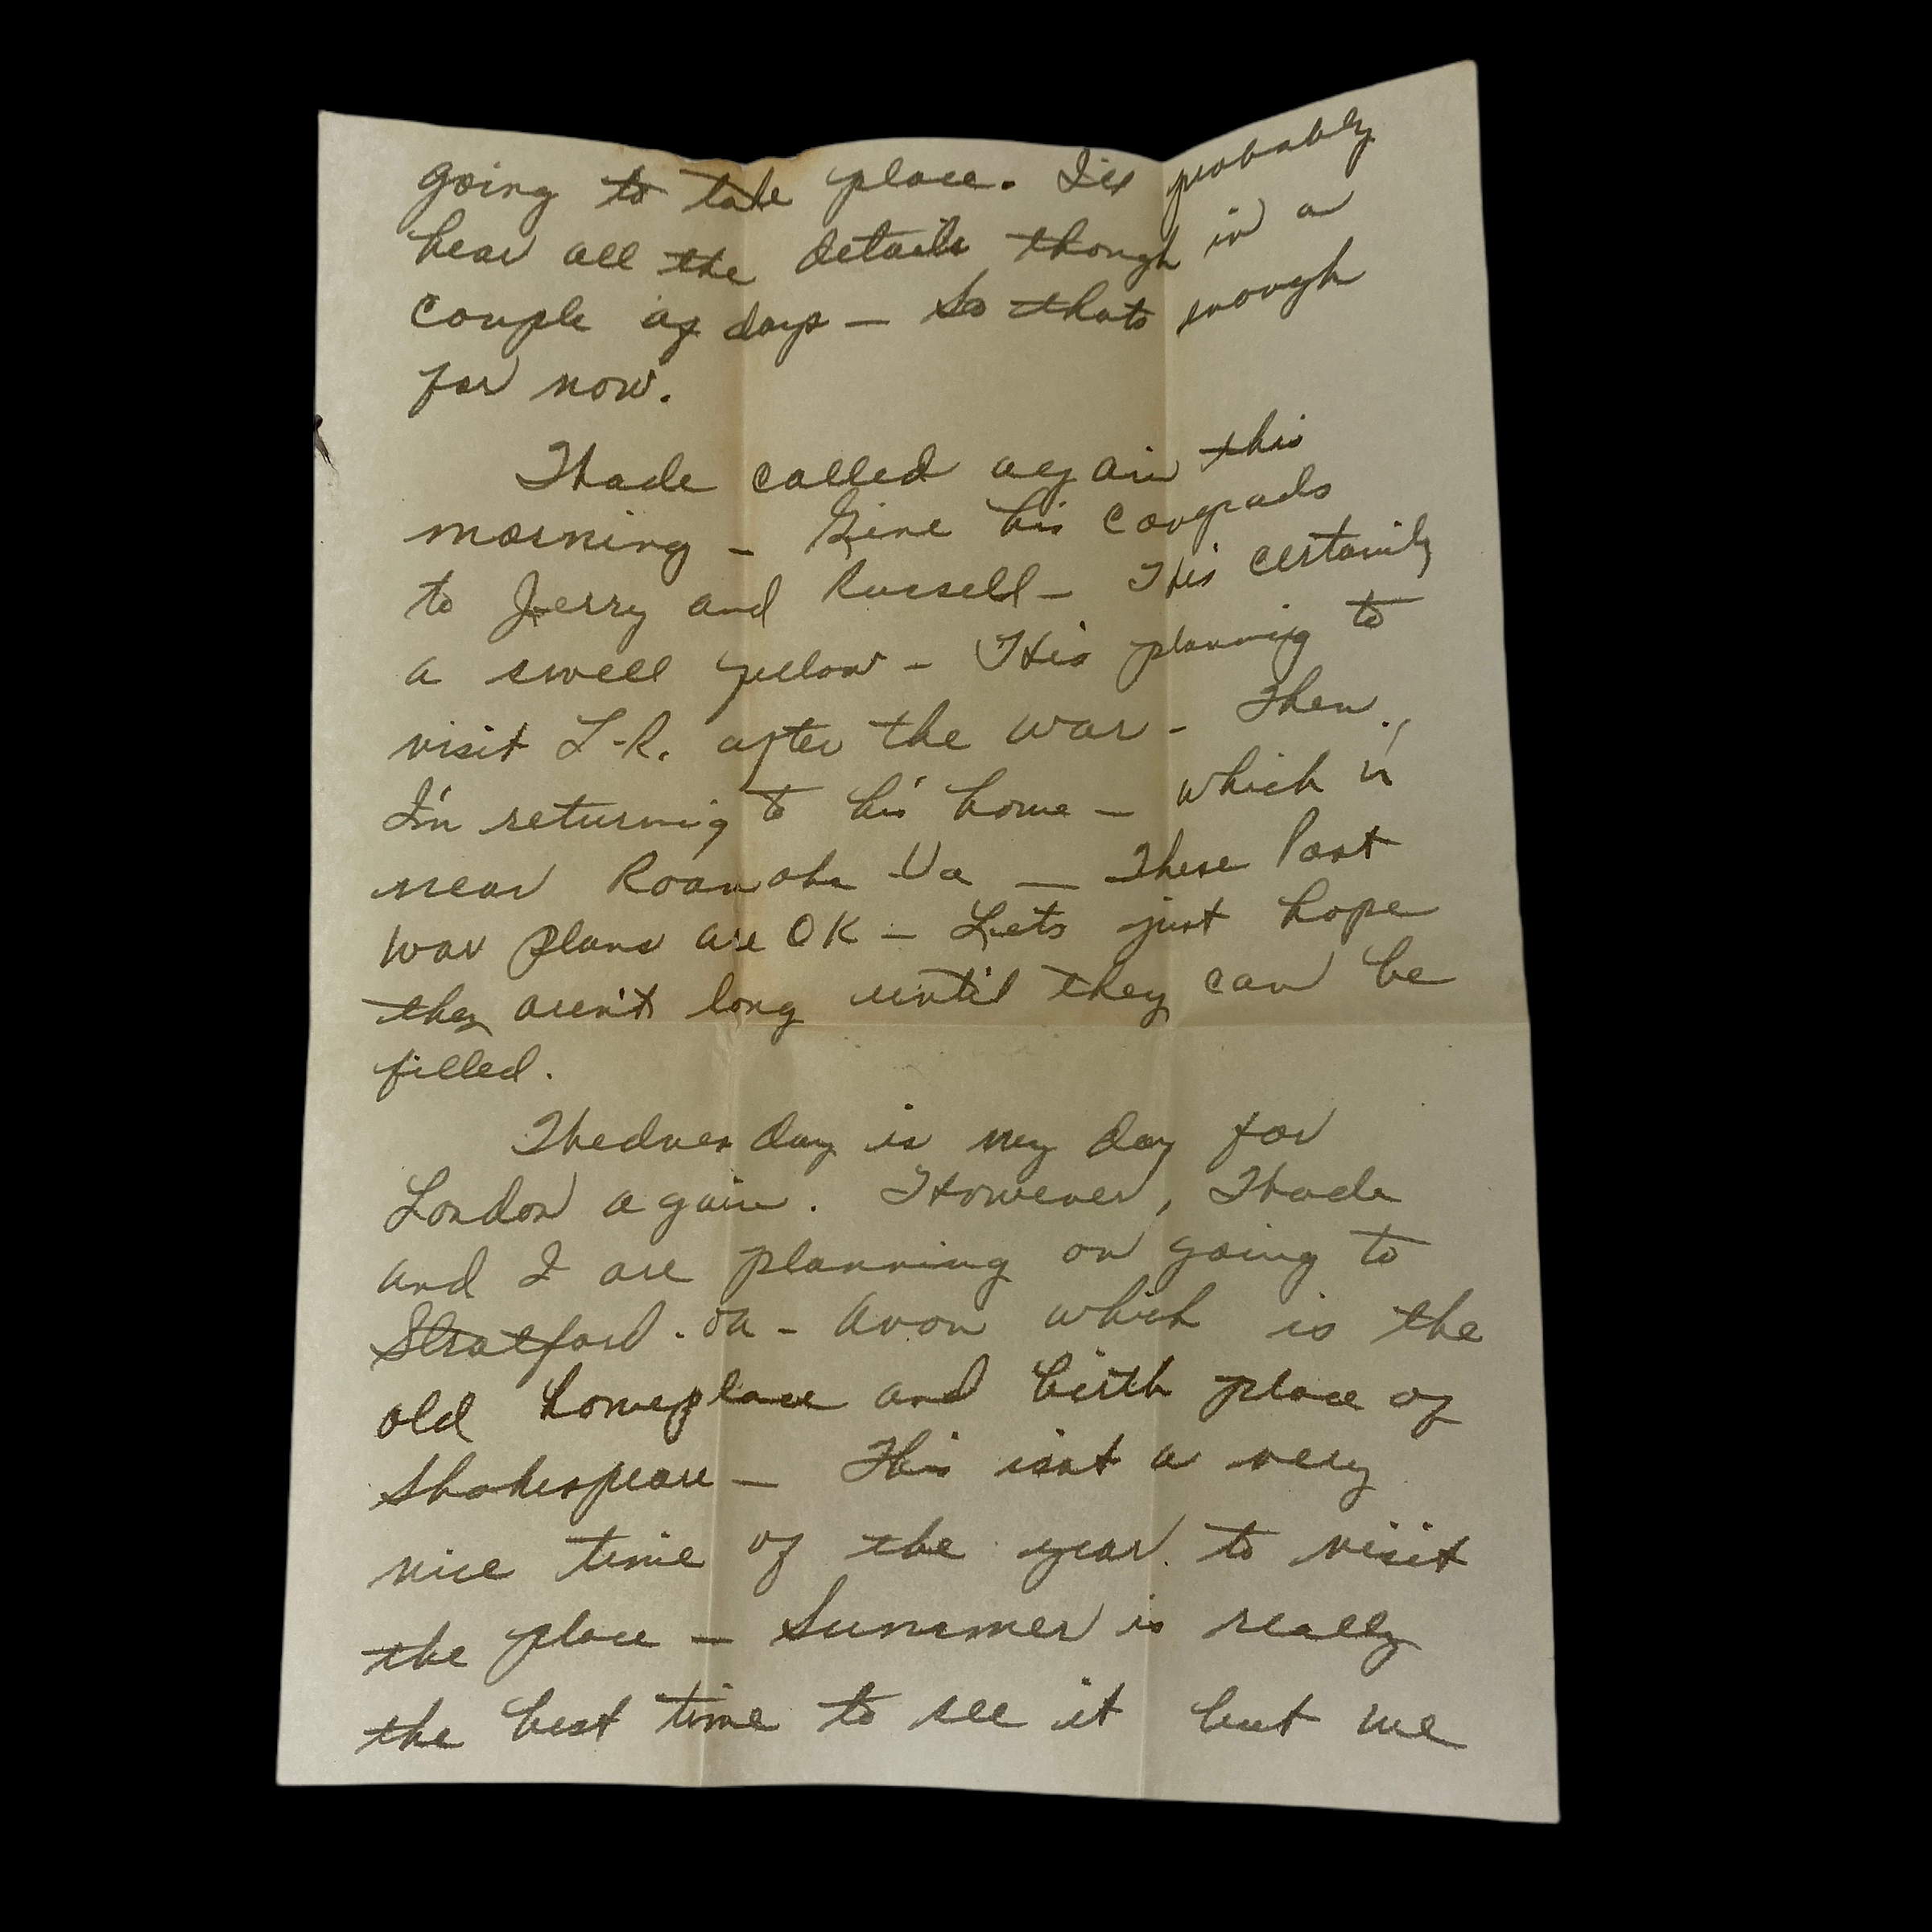 going to take place. I'll probably
hear all the details though in a
couple of days — So thats enough
for now.
Thade called again this
morning — Give his congrads
to Jerry and Russell — He's certainly
a swell fellow — He's planning to
visit L.R. after the war — Then,
I'm returning to his home — which is
near Roanoke Va — These Post
war plans are OK — Lets just hope
they aren't long until they can be
filled.
Wednesday is my day for
London again. However, Thade
and I are planning on going to
Stratford-on-Avon which is the
old homeplace and birth place of
Shakespeare — This isnt a very
nice time of the year to visit
the place — Summer is really
the best time to see it but we